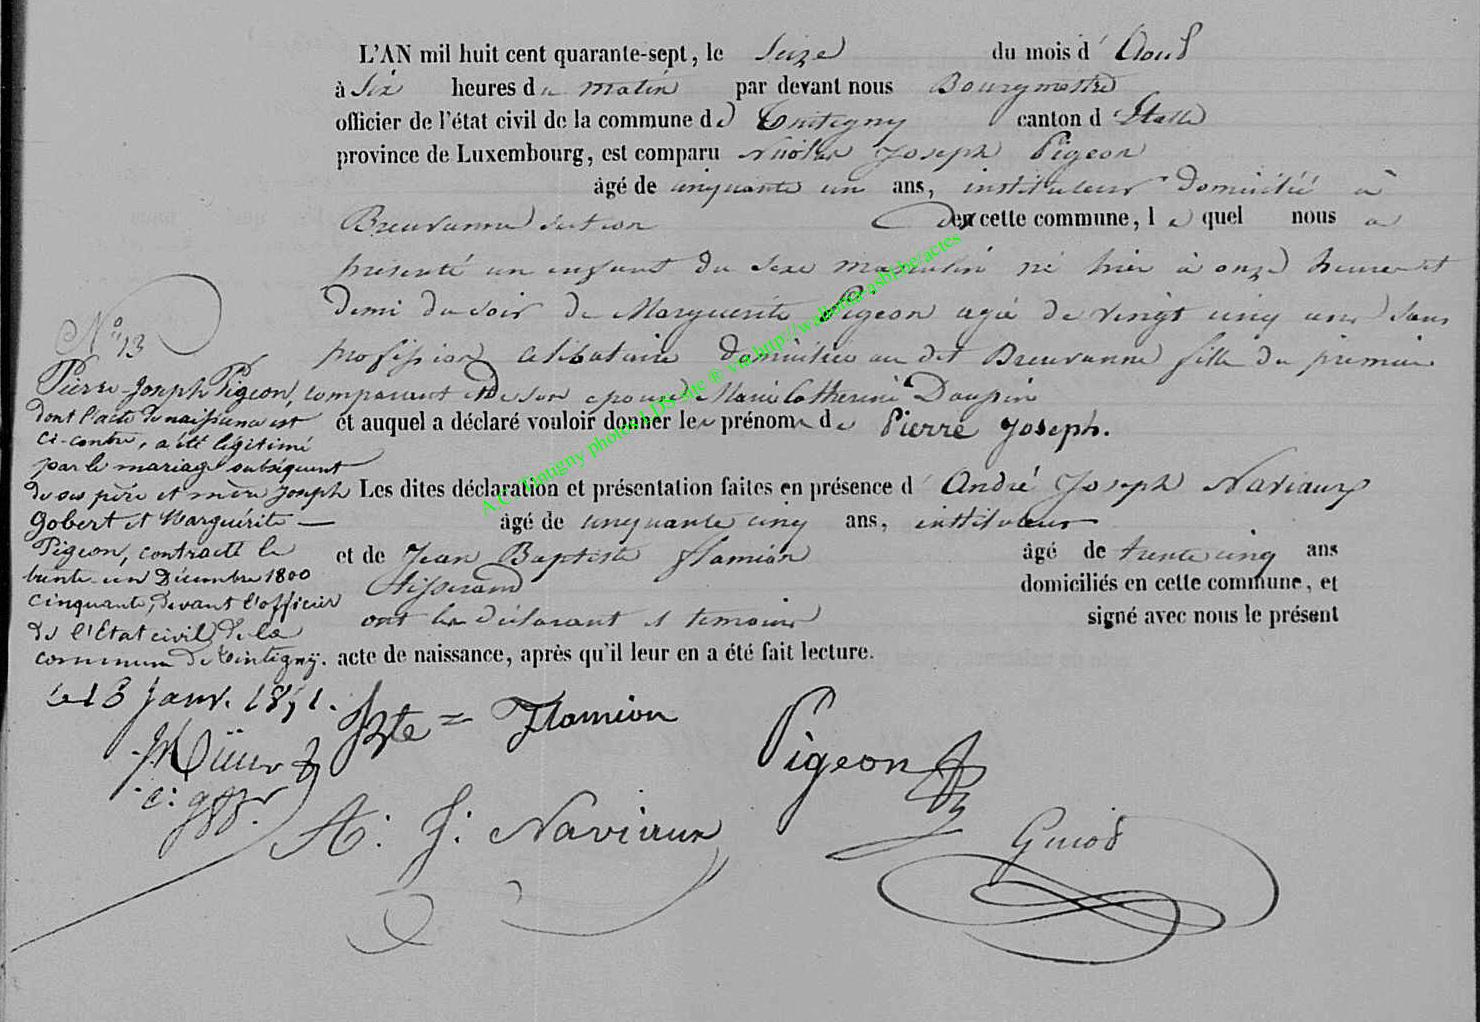 L'AN mil huit cent quarante-sept, le seize du mois d'Aout
à six heures du matin par devant nous Bourgmestre
officier de l'état civil de la commune de Tintigny canton d'Etalle
province de Luxembourg, est comparu Nicolas Joseph Pigeon
âgé de cinquante un ans, instituteur domicilié à
Breuvanne section de cette commune, lequel nous a
présenté un enfant du sexe masculin né hier à onze heures et
demi du soir de Marguerite Pigeon agée de vingt cinq ans sans
profession célibataire domiciliée au dit Breuvanne fille du premier
comparant et de son épouse Marie Catherine Daupin
et auquel a déclaré vouloir donner les prénoms de Pierre Joseph.
Les dites déclaration et présentation faites en présence d'André Joseph Naviaux
âgé de cinquante cinq ans, instituteur
et de Jean Baptiste Flamion âgé de trente cinq ans
tisserand domiciliés en cette commune, et
ont les déclarant et temoins signé avec nous le présent
acte de naissance, après qu'il leur en a été fait lecture.
N° 73
Pierre-Joseph Pigeon,
dont l'acte de naissance est
ci-contre, a été légitimé
par le mariage subséquent
de ses père et mère Joseph
Gobert et Marguérite
Pigeon, contracté le
trente-un Décembre 1800
cinquante, devant l'officier
de l'Etat civil de la
commune de Tintigny.
Le 13 Janv. 1851.
JBte Flamion
Pigeon
A: J: Naviaux
Guiot
A.C. Tintigny photos LDS site ® via http://wallonia-asbl.be/actes